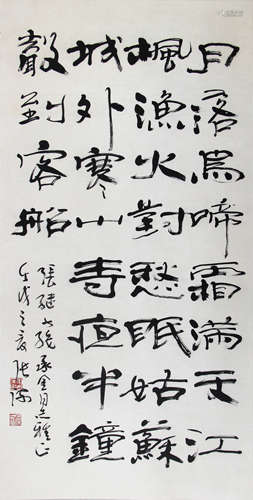 月落烏啼霜滿天江
楓漁火對愁眠姑蘇
城外寒山寺夜半鐘
聲到客船
張繼 同志雅正
壬戌之夏